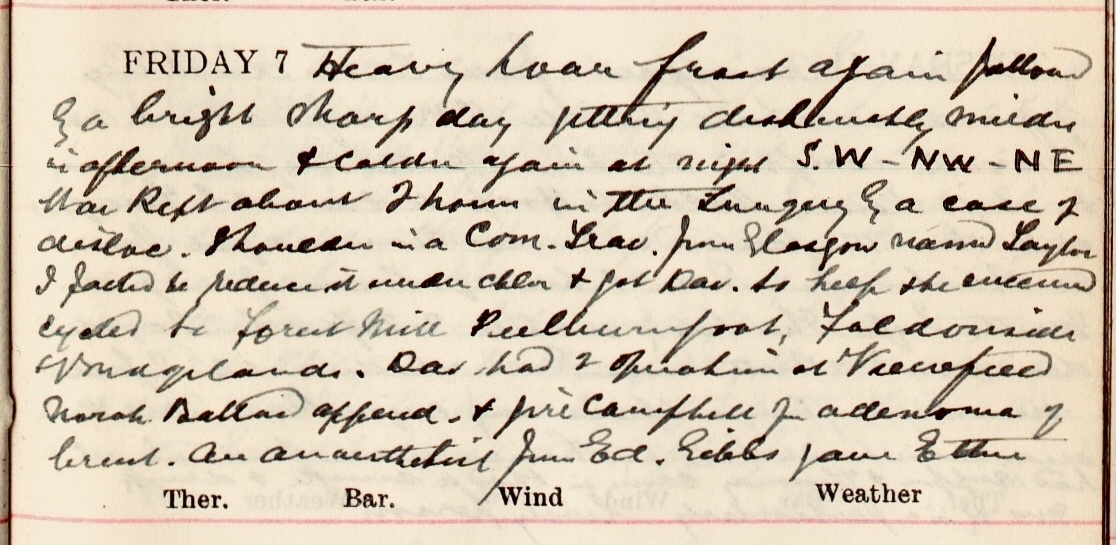 FRIDAY 7 Heavy hoar frost again followed
by a bright sharp day getting distinctly milder
in afternoon & colder again at night S.W - NW - NE
Was kept about 2 hours in the Surgery by a case of
disloc. shoulder in a Com. Trav. from Glasgow named Taylor
I failed to reduce it under chlor & got Dav. to help & he succeeded
cycled to Forest Mill Peelburnfoot, Faldonside
& Bridgelands. Dav had 2 operations at Viewfield
Norah Ballad append. & Campbell for adenoma of
breast. An anaesthetist from Ed. Gibbs gave Ether
Ther. Bar. Wind Weather